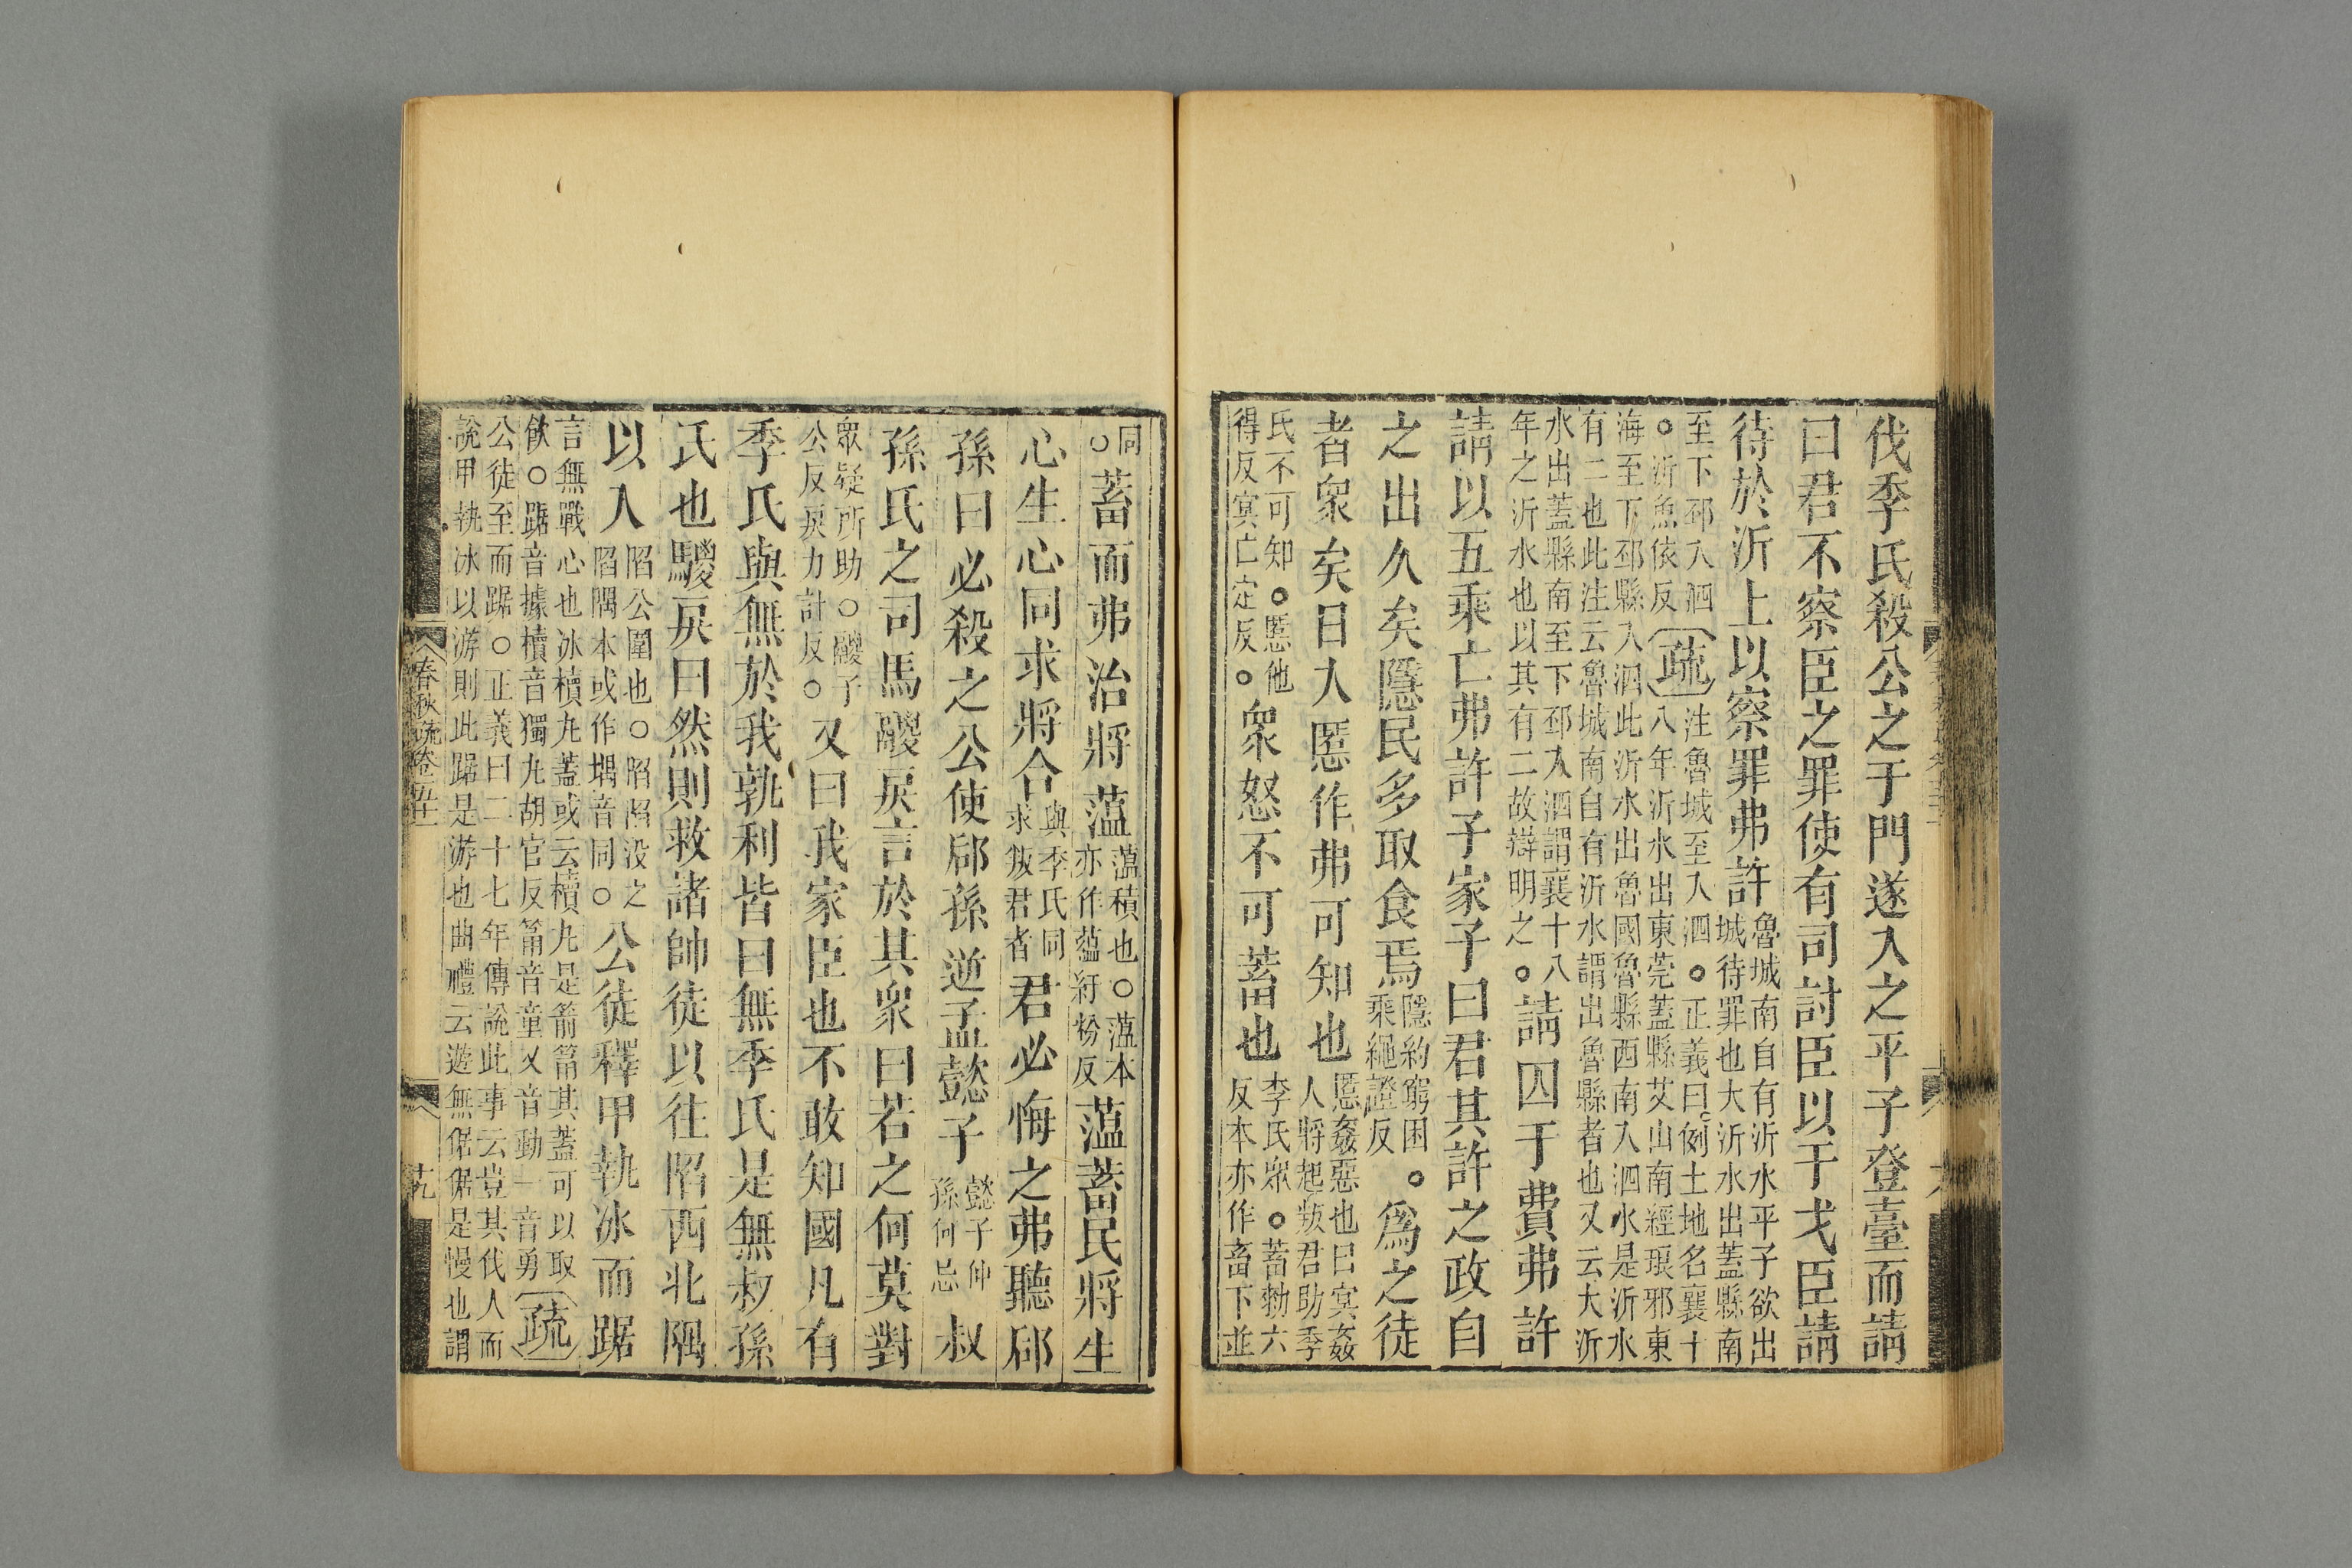 伐季氏殺公之于門遂入之平子登臺而請
曰君不察臣之罪使有司討臣以干戈臣請
待於沂上以察罪弗許魯城南自有沂水平子欲出城待罪也大沂水出蓋縣南
至下邳入泗○沂魚依反疏注魯城至入泗○正義曰例土地名襄十八年沂水出東莞蓋縣艾山南經琅邪東
海至下邳縣入泗此沂水出魯國魯縣西南入泗水是沂水有二也此注云魯城南自有沂水謂出魯縣者也又云大沂
水出蓋縣南至下邳入泗謂襄十八年之沂水也以其有二故辯明之○請囚于費弗許
請以五乘亡弗許子家子曰君其許之政自
之出久矣隱民多取食焉隱約窮困乘繩證反○為之徒
者衆矣日入慝作弗可知也慝姦惡也日冥姦人將起叛君助季
氏不可知○慝他得反冥亡定反○衆怒不可蓄也季氏衆○蓄勑六反本亦作畜下並
同○蓄而弗治將薀薀積也○薀本亦作蘊紆粉反薀蓄民將生
心生心同求將合與季氏同求叛君者君必悔之弗聽郈
孫曰必殺之公使郈孫逆孟懿子懿子仲孫何忌叔
孫氏之司馬鬷戾言於其衆曰若之何莫對
眾疑所助○鬷子公反戾力計反○又曰我家臣也不敢知國凡有
季氏與無於我孰利皆曰無季氏是無叔孫
氏也鬷戾曰然則救諸帥徒以往陷西北隅
以入陷公圍也○陷陷沒之陷隅本或作堣音同○公徒釋甲執冰而踞
言無戰心也冰櫝丸蓋或云櫝丸是箭筩其蓋可以取飲○踞音據櫝音獨丸胡官反筩音童又音動一音勇疏
公徒至而踞○正義曰二十七年傳說此事云豈其伐人而說甲執冰以游則此踞是游也曲禮云遊無倨倨是慢也謂
春秋疏卷五十一
十九